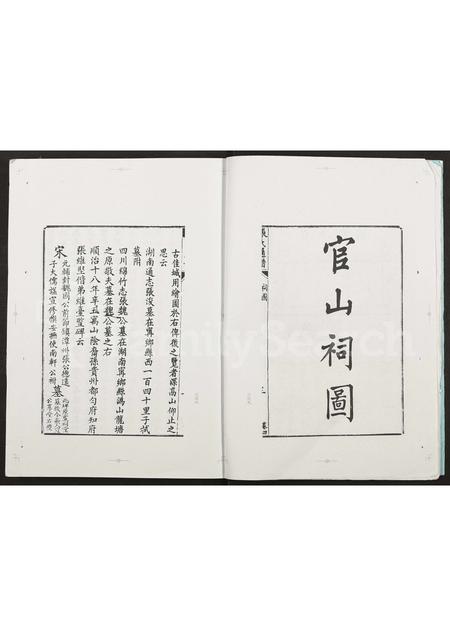 官山祠圖
張氏通譜
祠圖
卷四
古佳城用繪圖於右俾後之覽者深高山仰止之
思云
湖南通志張浚墓在寧鄉縣西一百四十里子栻
墓附
四川綿竹志張魏公墓在湖南寧鄉縣溈山龍塘
之原敬夫墓在魏公墓之右
順治十八年辛丑嵩山陰裔孫貴州都勻府知府
張維堅偕弟維臺豎碑云
宋
元輔封魏國公前節鎮漳州張公德遠
子大儒諡宣修撰安撫使南軒公栩
墓